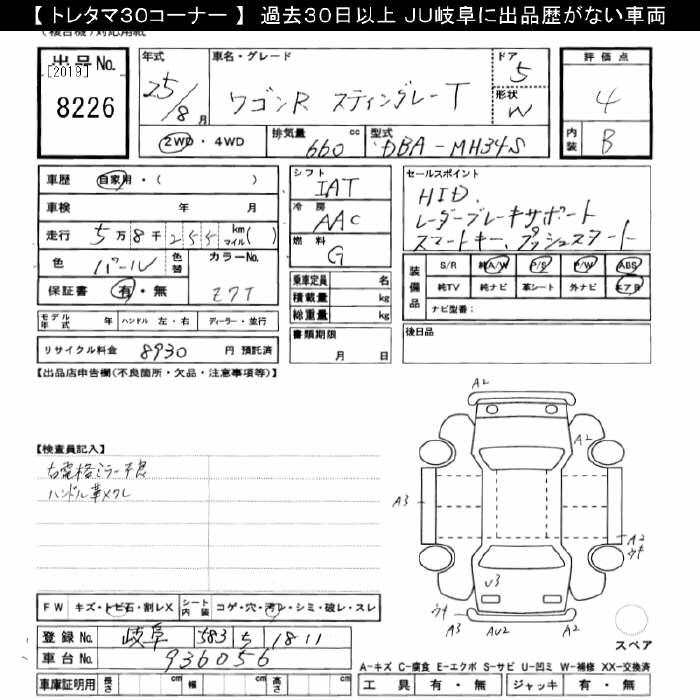 【 トレタマ30コーナー 】 過去30日以上 JU岐阜に出品歴がない車両
出品No.
[2019]
8226
年式
25/8月
車名・グレード
ワゴンR スティングレーT
ドア
5
形状
W
2WD・4WD
排気量
660 cc
型式
DBA-MH34S
評価点
4
内装
B
車歴 自家用・( )
車検 年 月
走行 5万8千255 km マイル( )
色 パール 色替
カラーNo. Z7T
保証書 有・無
モデル年式 年 ハンドル 左・右 ディーラー・並行
リサイクル料金 8930 円 預託済
シフト
IAT
冷房
AAC
燃料
G
乗車定員 名
積載量 kg
総重量 kg
書類期限
月 日
セールスポイント
HID.
レーダーブレーキサポート
スマートキー、プッシュスタート
装備品
S/R 純A/W P/S P/W ABS
純TV 純ナビ 革シート 外ナビ エアB
ナビ型番:
後日品
【出品店申告欄(不良箇所・欠品・注意事項等)】
【検査員記入】
右電格ミラー不良
ハンドル革メクレ
A2
A2
A3
A2
ウキ
U3
ウキ
A3
AU2
A2
スペア
FW キズ・トビ石・割レX シート内装 コゲ・穴・汚レ・シミ・破レ・スレ
登録No. 岐阜 583 5 18-11
車台No. 936056
車庫証明用 長さ cm 幅 cm 高さ cm
A-キズ C-腐食 E-エクボ S-サビ U-凹ミ W-補修 XX-交換済
工具 有・無 ジャッキ 有・無